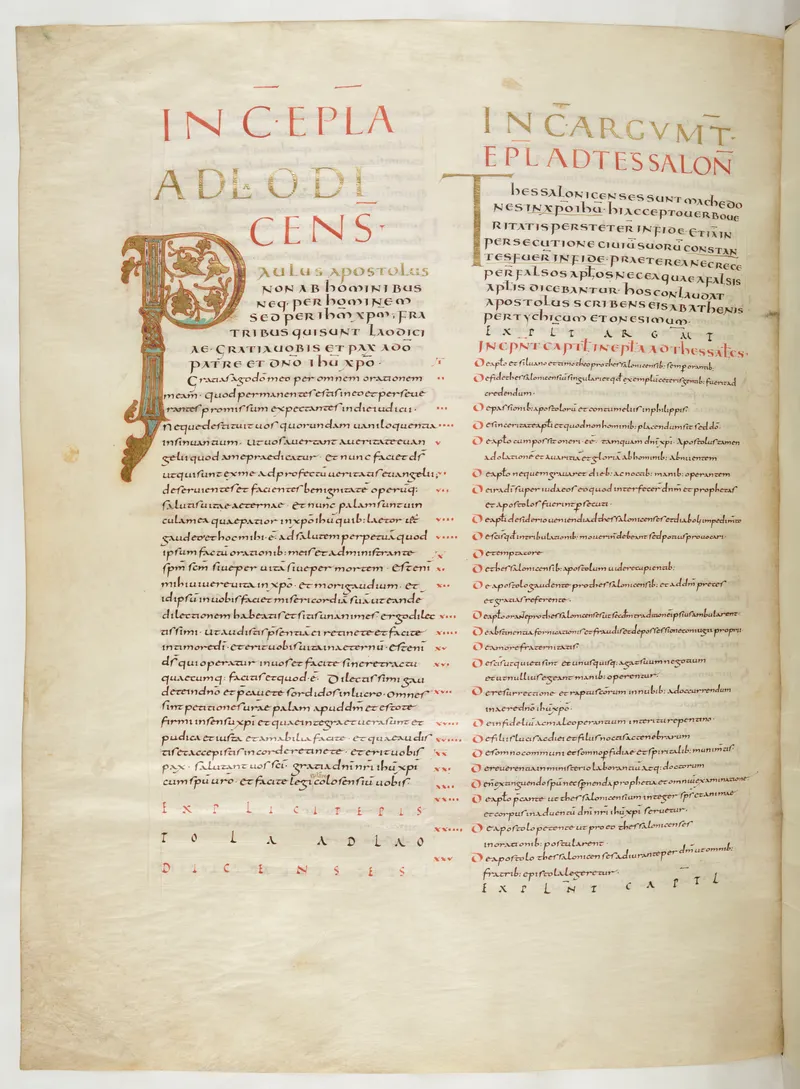 INC̄·EPL̄A
AD LODI
CENS̄·
PAULUS APOSTOLUS
NON AB HOMINIBUS
NEQ· PER HOMINEM
SED PER IHM̄ XPM̄· FRA
TRIBUS QUI SUNT LAODICI
AE· GRATIA UOBIS ET PAX A DŌ
PATRE ET DNŌ IHŪ XPŌ·
Gratias ago dō meo per omnem orationem
meam· quod permanentes estis in eo et perseue
rantes promissum expectantes in die iudicii·
neque destituit uos quorundam uaniloquentia
insinuantium· ut uos auertant a ueritate euan
gelii quod a me praedicatur· et nunc faciet ds̄
ut qui sunt ex me ad profectū ueritatis euangelii
deseruientes et facientes benignitatē operūq:
salutis uitae aeternae· et nunc palam sunt uin
cula mea quae patior in xpō ihū quib: laetor ut
gaudeo et hoc mihi ē ad salutem perpetuā quod
ipsum factū orationib: meis et administrante
spm̄ scm̄ siue per uitā siue per mortem· est eni
mihi uiuere uita in xpō· et mori gaudium· et
id ipsū in uobis faciet misericordiā suā ut eande
dilectionem habeatis et sitis unanimes· ergo dilec
tissimi· ut audistis psentia ei retinete et facite
in timore dī· et erit uobis uita in aeternū· est eni
ds̄ qui operatur in uos et facite sine retractu
quaecumq: facitis et quod ē· Dilectissimi gau
dete in dnō et pcauete sordidos in lucro· omnes
sint petitiones urae palam apud dm̄ et estote
firmi in sensu xpī et quae integra et uera sunt et
pudica et iusta et amabilia facite· et quae audis
tis et accepistis in corde retinete· et erit uobis
pax· salutant uos scī· gratia dnī nrī ihū xpī
cum spū uro· et facite legi colosensiū uobis·
EXPLICIT EPIS
TOLA AD LAO
DICENSES
INC̄·ARGVMT̄·
EPL̄ AD TESSALON̄
THESSALONICENSES SUNT MACHEDO
NES IN XPŌ IHŪ· HI ACCEPTO UERBO UE
RITATIS PERSTETER IN FIDE ETIĀ IN
PERSECUTIONE CIUIŪ SUORŪ CONSTAN
TES FUER IN FIDE· PRAETEREA NEC RECE
PER FALSOS APLOS NEC EA QUAE A FALSIS
APLIS DICEBANTUR· HOS CONLAUDAT
APOSTOLUS SCRIBENS EIS AB ATHENIS
PER TYCHICUM ET ONESIMUM·
EXPLT ARGMT
INCPNT CAPTL IN EPLA AD THESSALES·
De aplo et siluano et timotheo pro thessalonicensib: semper orantib:
De fide thessalonicensiū singulari et qd exemplū ceteris gentib: fuerit ad
credendum·
De passionib: apostolorū et contumeliis in philippis·
De sinceritate apli et quod non hominib: placendum sit sed dō·
De aplo cum possit oneri ēē· tamquam dnī xpī· apostolus tamen
adolatione et auaritia et gloriā ab hominib: abnuentem
De aplo ne quem grauaret dieb: ac noctib: manib: operantem
De ira dī super iudaeos eo quod interfecer dnm̄ et prophetas
et apostolos fuerint psecuti
De apli desiderio ueniendi ad thessalonicenses et diaboli impedimto
De scīs qd in tribulationib: moueri nō debeant sed potius prouocari·
De temptatore·
De thessalonicensib: apostolum uidere cupientib:
De apostolo gaudente pro thessalonicensib: et ad dm̄ preces
et gratias referente·
De aplo orante pro thessalonicensib: ut secdm̄ traditionē ipsius ambularent·
De abstinentia fornicationis et fraudis et de possessione coniugii proprii
De amore fraternitatis·
De scīs ut quieti sint et unusquisq: agat suum negotium
et ut nullius egeant manib: operentur·
De resurrectione· et raptu scōrum in nubib: ad occurrendum
in aere dnō ihū xpō·
De infideliū ac male operantium interitu repentino·
De filiis lucis ac diei et filiis noctis ac tenebrarum
De somno communi et somno pfidiae et spiritalib: munimtis
De reuerentia in ministerio laborantiū atq: doctorum
De nō exstinguendo spū nec spnenda prophetia et omniū examinatione
De aplo pcante ut thessalonicensium integer sps̄ et animae
et corpus in aduentū dnī nrī ihū xpī seruetur·
De apostolo petente ut pro eo thessalonicenses
in orationib: postularent·
De apostolo thessalonicenses adiurante per dm̄ ut omnib:
fratrib: epistola legeretur·
EXPLNT CAPTL